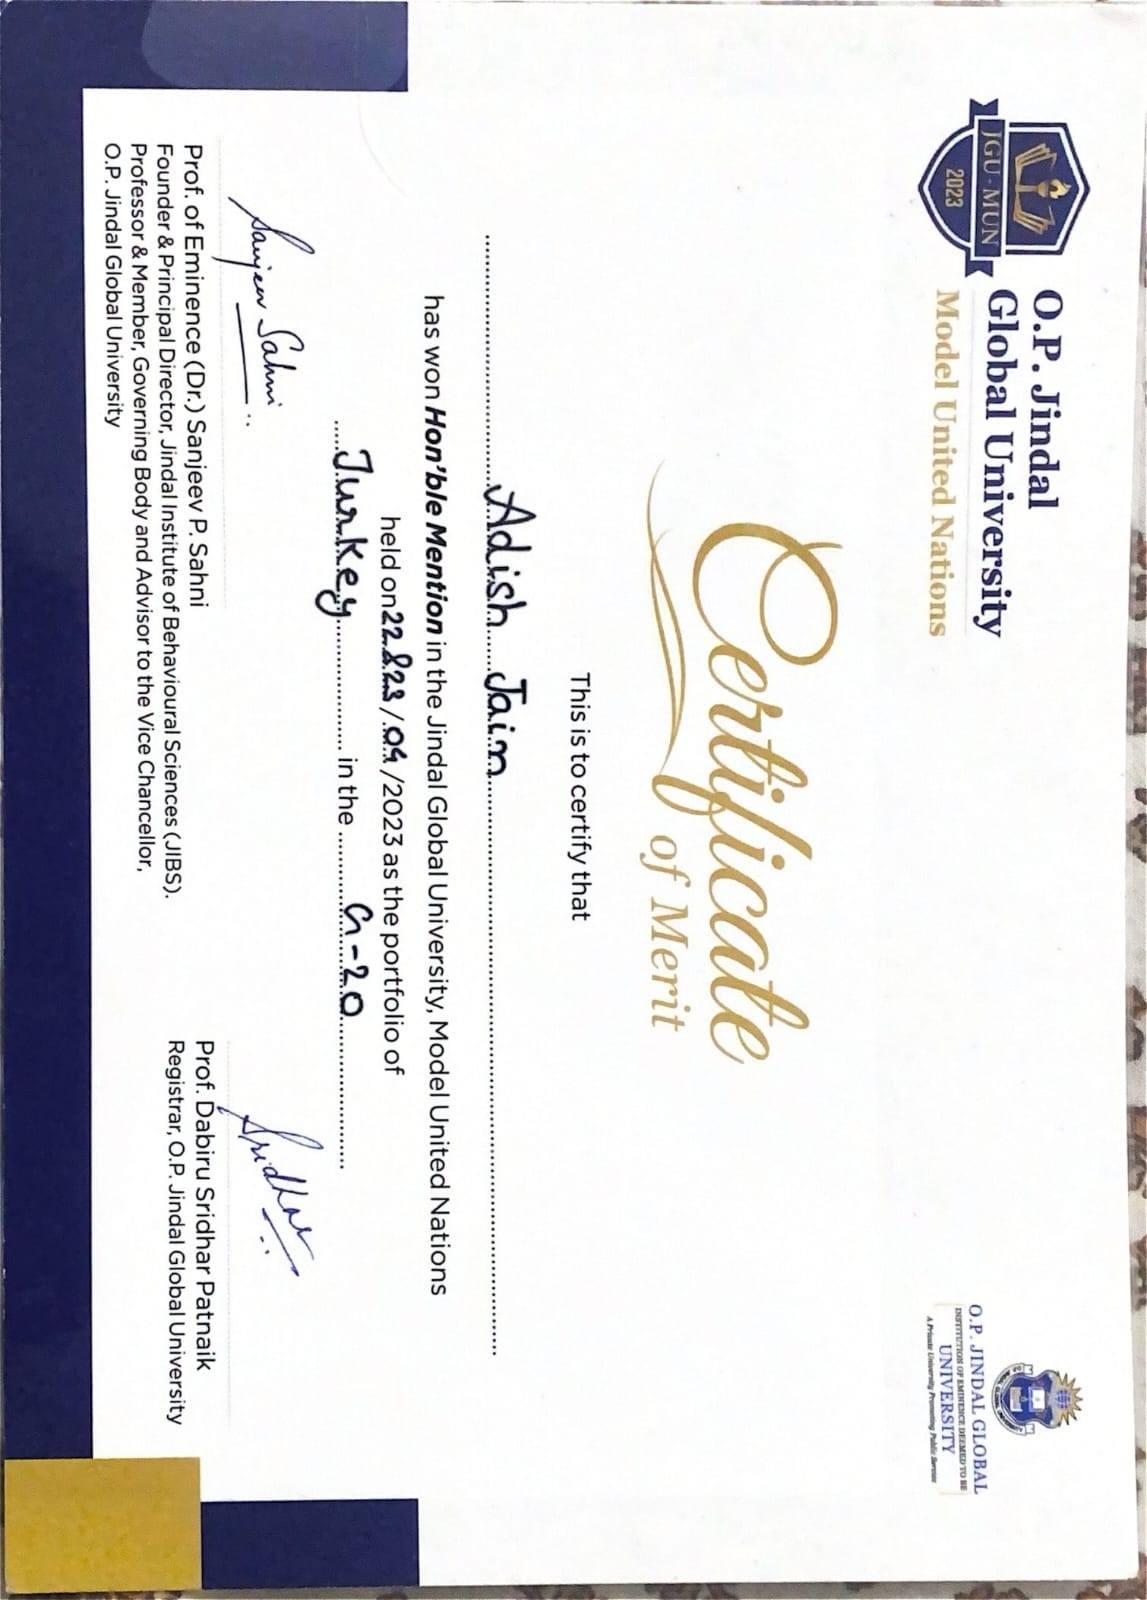 JGU - MUN
2023
O.P. Jindal
Global University
Model United Nations
O.P. JINDAL GLOBAL
INSTITUTION OF EMINENCE DEEMED TO BE
UNIVERSITY
A Private University Promoting Public Service
Certificate
of Merit
This is to certify that
Adish Jain
has won Hon'ble Mention in the Jindal Global University, Model United Nations
held on 22&23/09/2023 as the portfolio of
Turkey in the G-20
Sanjeev Sahni
Prof. of Eminence (Dr.) Sanjeev P. Sahni
Founder & Principal Director, Jindal Institute of Behavioural Sciences (JIBS).
Professor & Member, Governing Body and Advisor to the Vice Chancellor,
O.P. Jindal Global University
Sridhar
Prof. Dabiru Sridhar Patnaik
Registrar, O.P. Jindal Global University